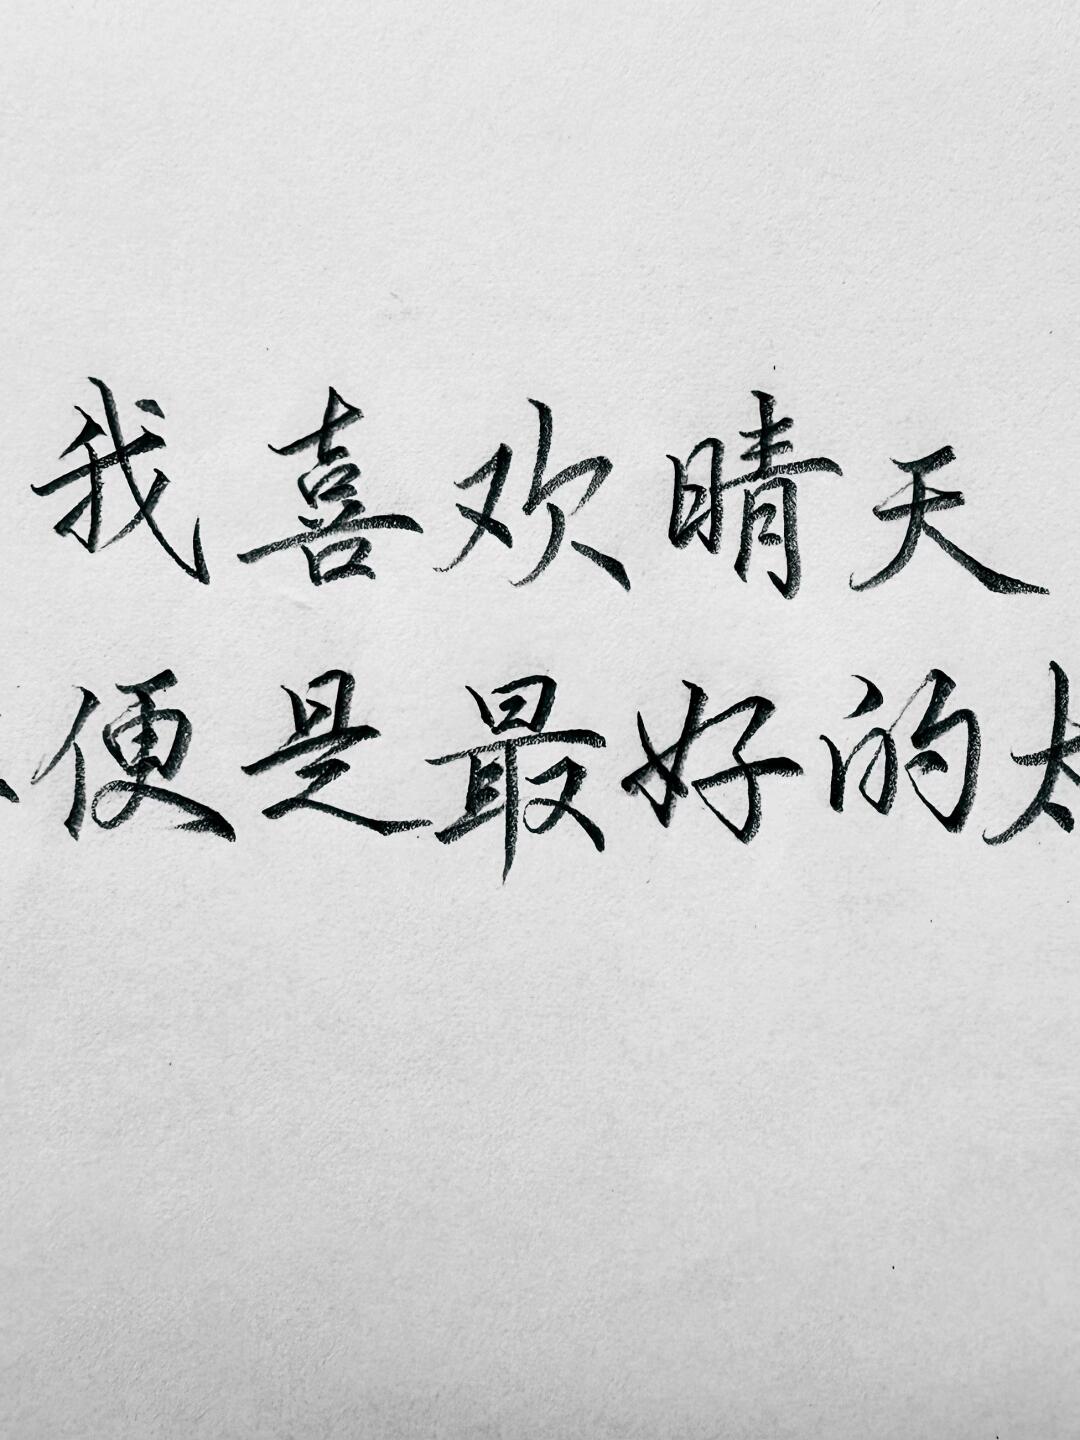 我喜欢晴天
便是最好的